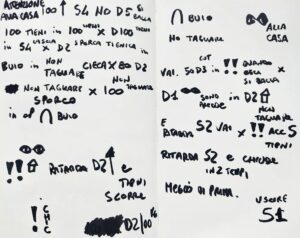 ATTENZIONE
ALLA CASA 100↑ S4 NO D5 SI BALLA
100 TIENI in 100 TIENI x D100 TIENI
in LASCIA S4 x D2 SPORCA TIENICA in
BUIO in NON TAGLIARE CIECA x 80 D2
NON TAGLIARE x 100 NON TAGLIARE
SPORCO
in ∩ BUIO
!! ⇧ RITARDA D2 ↑ e TIENI
SCORRE
D2/100
∩ BUIO
NO TAGLIARE ALLA CASA
VAI. 50 D3 in !! QUANDO x ESCI SI BALLA
D1 SONO PRECISE in D2 ∩ NON TAGLIARE
E RITARDA S2 VAI x !! ACC 5 TIENI
RITARDA S2 E CHIUDE
IN 2 TEMPI
MEGLIO DI PRIMA.
USCIRE
S1